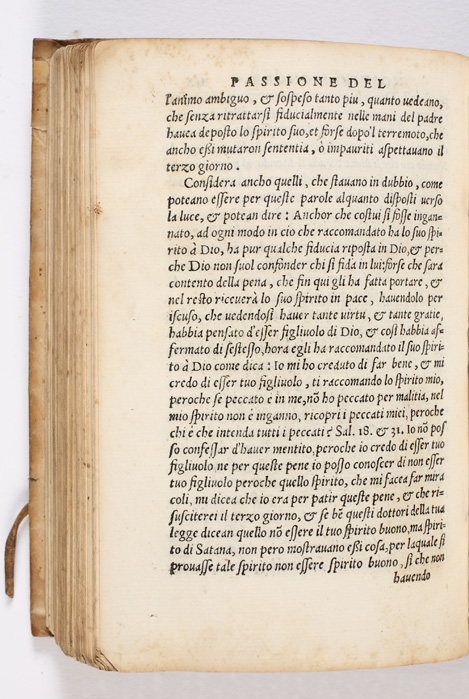 PASSIONE DEL
l'animo ambiguo, & sospeso tanto piu, quanto uedeano,
che senza ritrattarsi fiducialmente nelle mani del padre
hauea deposto lo spirito suo, et forse dopo'l terremoto, che
ancho eßi mutaron sententia, ò impauriti aspettauano il
terzo giorno.
Considera ancho quelli, che stauano in dubbio, come
poteano essere per queste parole alquanto disposti uerso
la luce, & potean dire: Anchor che costui si fosse ingan=
nato, ad ogni modo in cio che raccomandato ha lo suo spi=
rito à Dio, ha pur qualche fiducia riposta in Dio, & per=
che Dio non suol confonder chi si fida in lui: forse che sara
contento della pena, che fin qui gli ha fatta portare, &
nel resto riceuerà lo suo spirito in pace, hauendolo per
iscuso, che uedendosi hauer tante uirtu, & tante gratie,
habbia pensato d'esser figliuolo di Dio, & cosi habbia af=
fermato di sestesso, hora egli ha raccomandato il suo spiri=
to à Dio come dica: Io mi ho creduto di far bene, & mi
credo di esser tuo figliuolo, ti raccomando lo spirito mio,
peroche se peccato è in me, nõ ho peccato per malitia, nel
mio spirito non è inganno, ricopri i peccati miei, peroche
chi è che intenda tutti i peccati? Sal. 18. & 31. Io nõ pos
so confessar d'hauer mentito, peroche io credo di esser tuo
figliuolo ne per queste pene io posso conoscer di non esser
tuo figliuolo peroche quello spirito, che mi facea far mira
coli, mi dicea che io era per patir queste pene, & che ri=
susciterei il terzo giorno, & se bẽ questi dottori della tua
legge dicean quello nõ essere il tuo spirito buono, ma spiri=
to di Satana, non pero mostrauano eßi cosa, per laquale si
prouasse tale spirito non essere spirito buono, si che non
hauendo